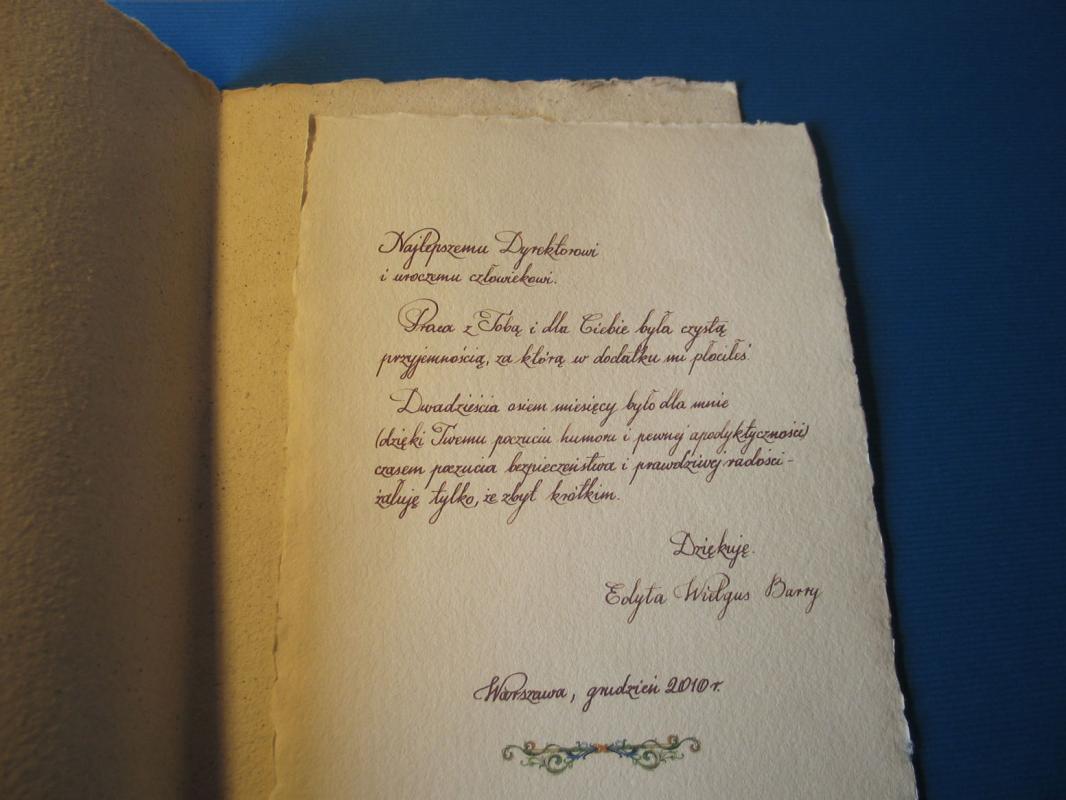 Najlepszemu Dyrektorowi
i uroczemu człowiekowi.
Praca z Tobą i dla Ciebie była czystą
przyjemnością, za którą w dodatku mi płaciłeś.
Dwadzieścia osiem miesięcy było dla mnie
(dzięki Twemu poczuciu humoru i pewnej apodyktyczności)
czasem poczucia bezpieczeństwa i prawdziwej radości -
żałuję tylko, że zbyt krótkim.
Dziękuję.
Edyta Wielgus Barry
Warszawa, grudzień 2010 r.